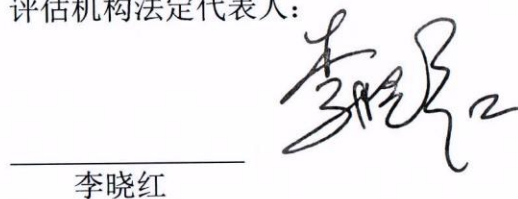 评估机构法定代表人：
李晓红
李晓红